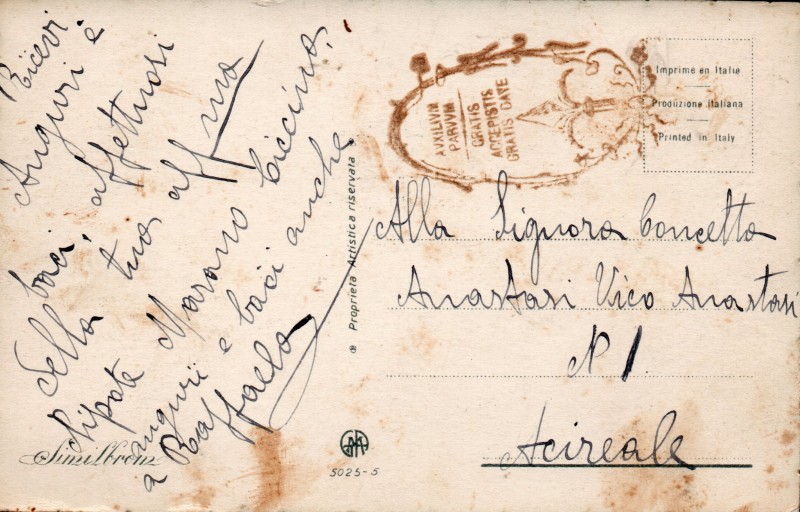 Ricevi
Auguri e
baci, affettuosi
Della tua affma
Nipote Marano Ciccina.
auguri e baci anche
a Raffaela
Similbrom
Proprietà Artistica riservata
5025-5
AVXILIVM
PARVVM
GRATIS
ACCEPISTIS
GRATIS DATE
Imprimé en Italie
Produzione Italiana
Printed in Italy
Alla Signora Concetta
Anastasi Vico Anastasi
N 1.
Acireale